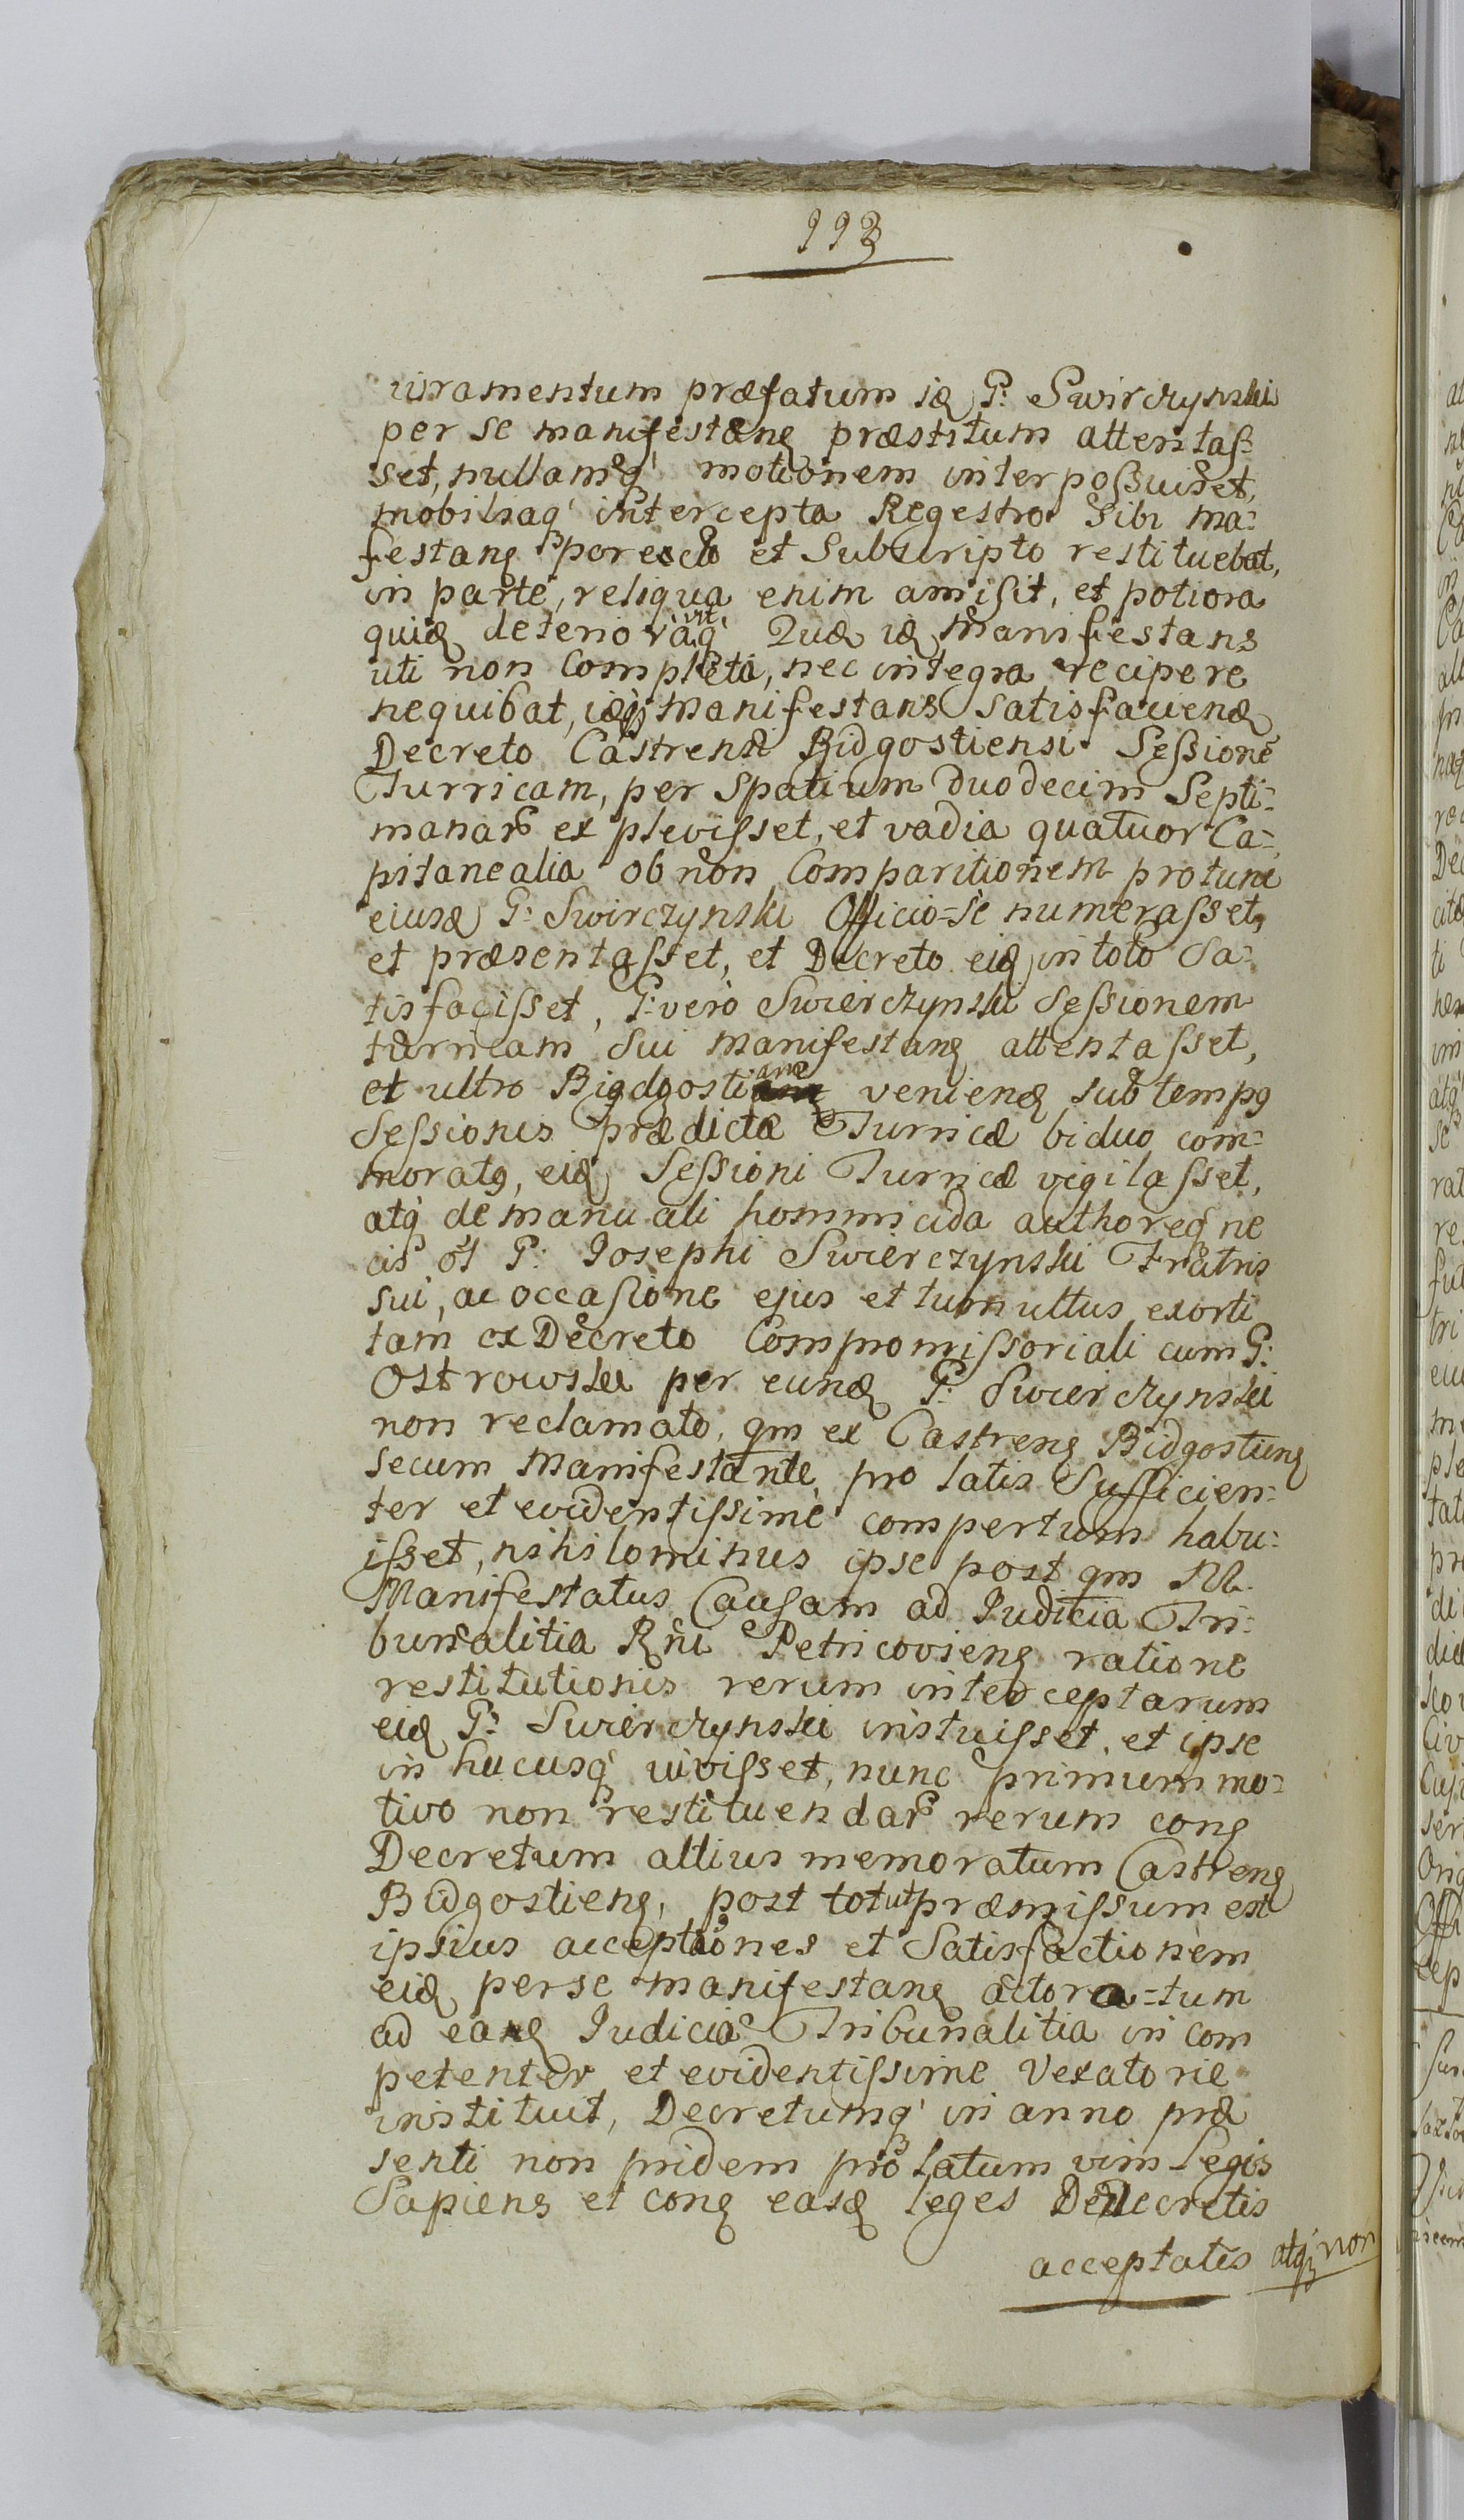 993
iuramentum præfatum idē G: Swirczynski
per se manifestanē præstitum attentaſ-
set, nullamq' motionem interpoſsuiſset,
mobiliaq' intercepta Regestro Sibi ma-
festanē porrecto et Subscripto restituebat,
in parte, reliqua enim amiſit, et potiora
quidē deterioravitq' Quæ idē Manifestans
uti non Completa, nec integra recipere
nequibat, idē Manifestans Satisfaciendē
Decreto Castrensi Bidgostiensi Seſsionē
Turricam, per Spatium duodecim Septi-
manarū explevisſet, et vadia quatuor Ca-
pitanealia ob non Comparitionem pro tunc
eiusdē G: Swirczynski Officiose numeraſset,
et præsentaſset, et Decreto eidē in toto Sa-
tisfaciſset, G: vero Swierczynski Seſsionem
turricam Sui manifestanē attentaſset,
et ultro Bigdgostiam venienē sub temp9
Seſsionis prædictæ Turricæ biduo com-
morat9, eidē Seſsioni Turricæ vigilaſset,
atq' de manuali hommicida authoreq' ne
cis ol G: Josephi Swierczynski Fratris
sui, ac occaſione ejus et tumultus exorti
tam ex Decreto Compromiſsoriali cum G:
Ostrowski per eundē G: Swierczynski
non reclamato, qm ex Castrenē Bidgostienē
secum Manifestante, pro latis Sufficien-
ter et evidentiſsime compertum habu-
iſset, nihilominus ipse post qm M.
Manifestatus Cauſam ad Judicia Tri-
bunalitia Rñi Petricoviensē ratione
restitutionis rerum interceptarum
eidē G: Swierczynski instuiſset, et ipse
in hucusq' uiviſset, nunc primum mo-
tivo non restituendarū rerum conē
Decretum altius memoratum Castrenē
Bidgostienē, post tot ut præmiſsum est
ipsius acceptationes et Satisfactionem
eidē per se manifestanē actora-tum
ad eadē Judicia Tribunalitia in com
petenter et evidentiſsime Vexatorie
instituit, Decretumq' in anno præ
senti non pridem prolatum vim Legis
Sapiens et conē easdē leges Decretis
acceptatis atq' non